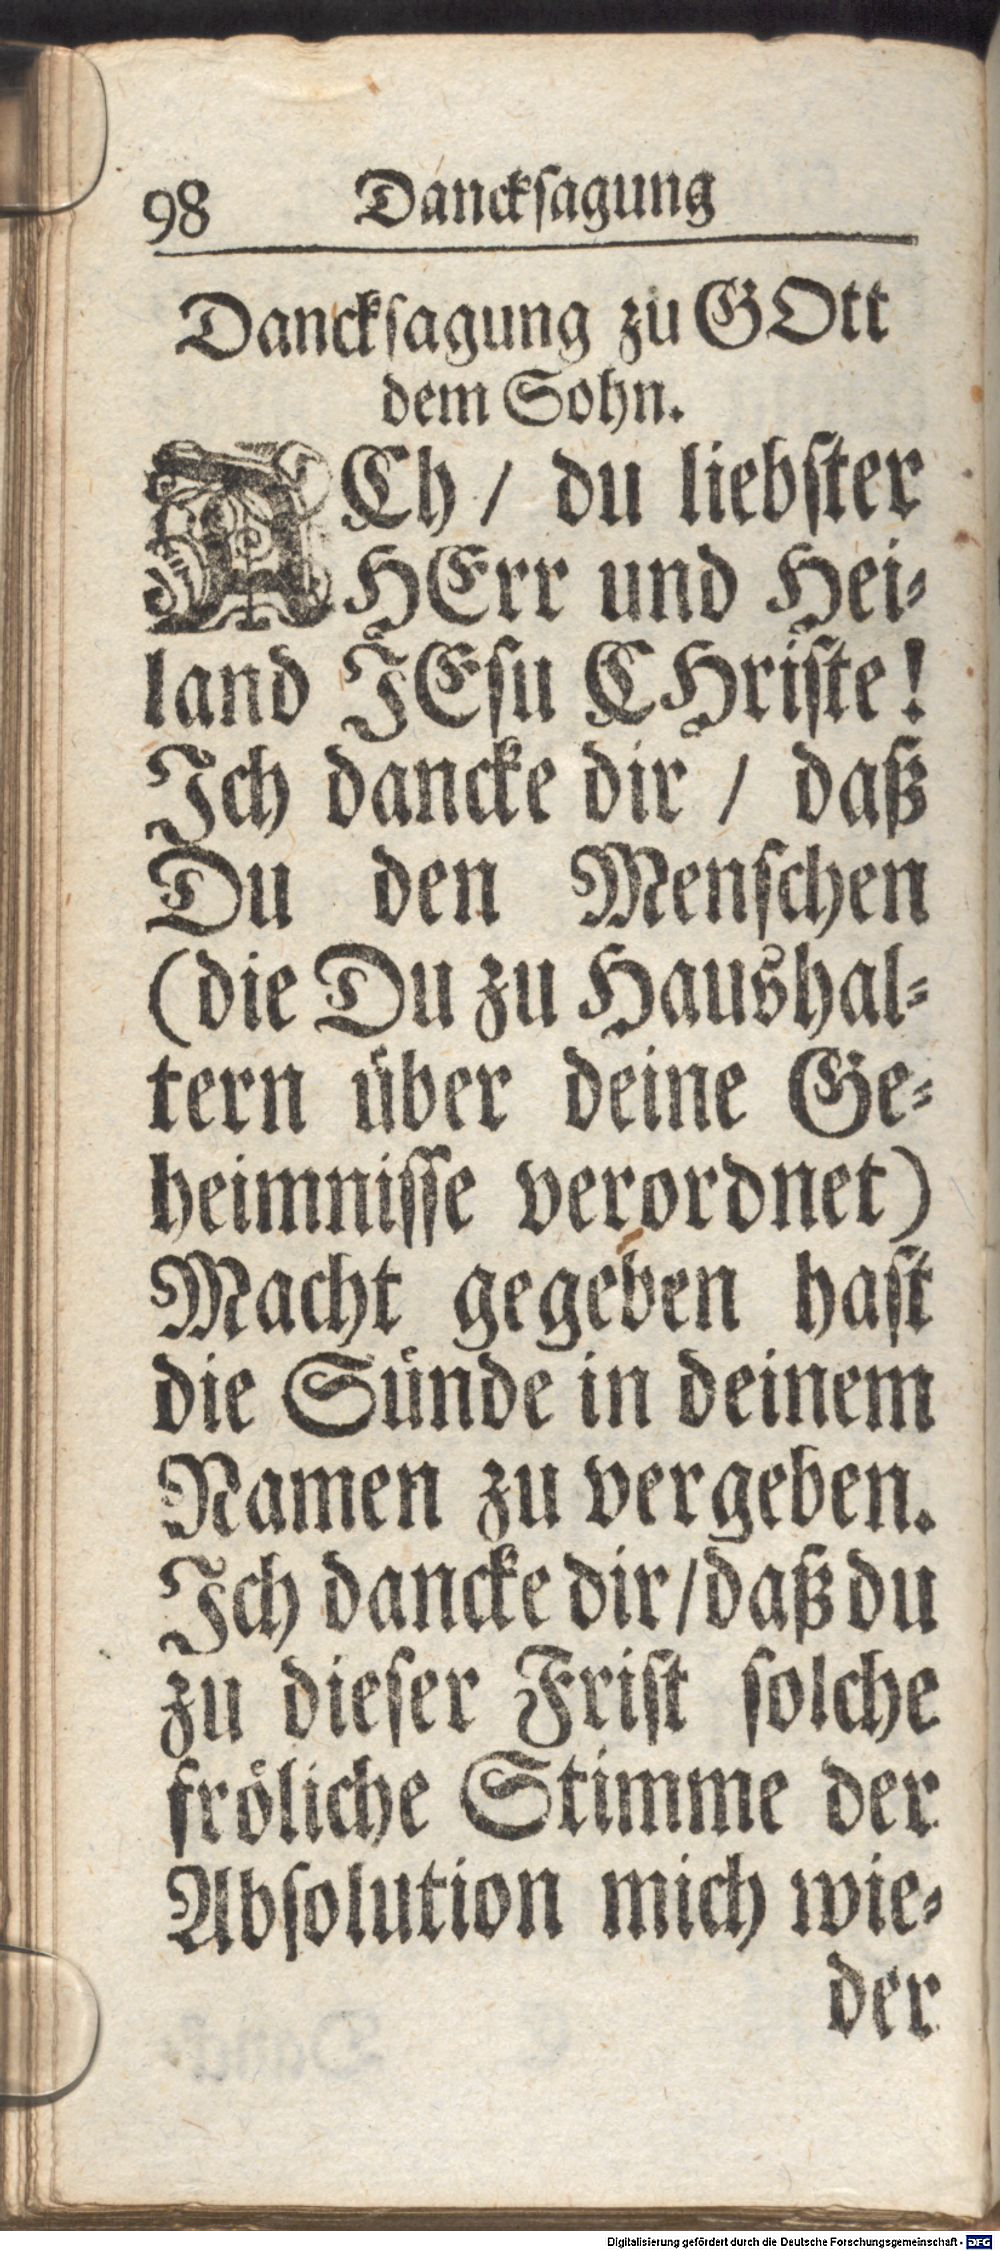 98 Danckſagung
Danckſagung zu GOtt
dem Sohn.
ACh / du liebſter
HErr und Hei⸗
land JEſu CHriſte!
Jch dancke dir / daß
Du den Menſchen
(die Du zu Haushal⸗
tern uͤber deine Ge⸗
heimniſſe verordnet)
Macht gegeben haſt
die Suͤnde in deinem
Namen zu vergeben.
Jch dancke dir/daß du
zu dieſer Friſt ſolche
froͤliche Stimme der
Abſolution mich wie⸗
der
Digitalisierung gefördert durch die Deutsche Forschungsgemeinschaft - DFG